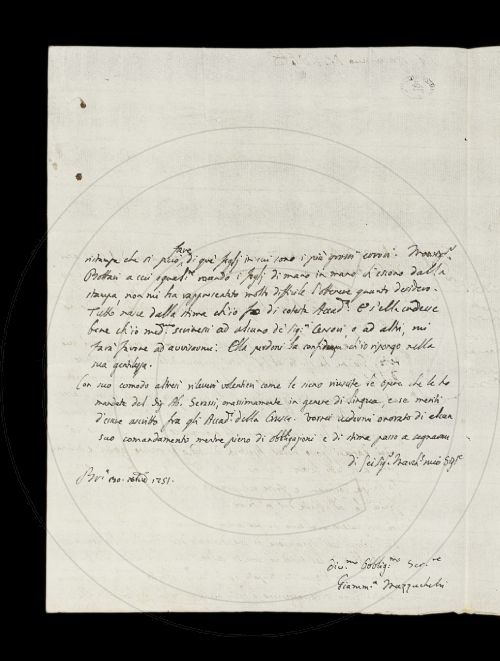 fare
ristampa che si può, di que' fogli in cui sono i più grossi errori. Monsig.r
Bottari a cui i fogli di mano in mano ch'escono dalla
stampa, non mi ha rappresentato molto difficile l'ottenere quanto desidero.
Tutto nasce dalla stima ch'io fo di cotesta Accad.a E s'ella credesse
bene ch'io med.mo scrivessi ad alcuno de' Sig.ri Censori o ad altri, mi
farà favore ad avvisarmi. Ella perdoni la confidenza ch'io ripongo nella
sua gentilezza.
Con suo comodo altresì rileverò volentieri come le sieno riuscite le opere che le ho
mandate del Sig. Ab. Serassi, massimamente in genere di Lingua, e se meriti
d'esser ascritto fra gli Accad.i della Crusca. Vorrei vedermi onorato di alcun
suo comandamento mentre pieno di obbligazioni e di stima passo a segnarmi
Di Lei Sig.r March.e mio Sig.re
1751.
Div.mo Obblig.mo Ser.re
Giamm.a Mazzuchelli